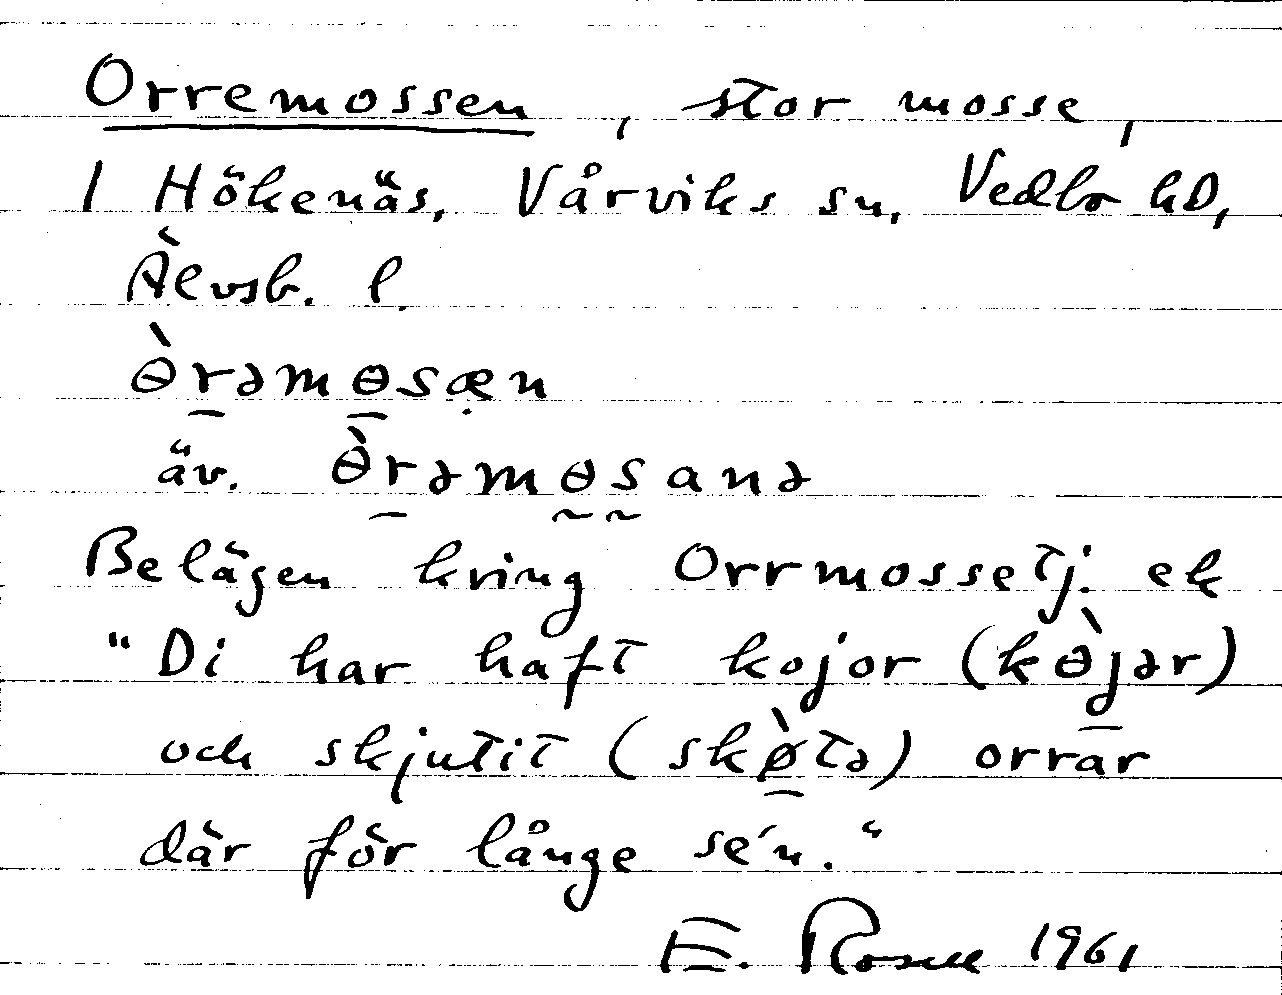 Orremossen, stor mosse,
1 Hökenäs, Vårviks sn, Vedbo hd,
Älvsb. l.
ɵ̀rəmɵsæn
äv. ɵ̀rəmɵsanə
Belägen kring Orrmossetj. ek
"Di har haft kojor (kɵ̀jər)
och skjutit (skø̀tə) orrar
där för långe se'n."
E. 1961